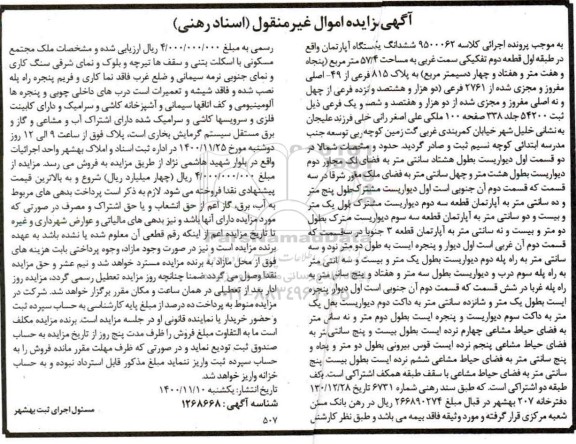 آگهی مزایده اموال غیر منقول (اسناد رهنی)
به موجب پرونده اجرائی کلاسه ۹۵۰۰۰۶۲ ششدانگ یکدستگاه آپارتمان واقع
در طبقه اول قطعه دوم تفکیکی سمت غربی به مساحت ۵۷/۴ متر مربع (پنجاه
و هفت متر و هفتاد و چهار دسیمتر مربع) به پلاک ۸۱۵ فرعی از ۴۹- اصلی
مفروز و مجزی شده از ۲۷۶۱ فرعی (دو هزار و هشتصد و نزده فرعی از چهل
و نه اصلی مفروز و مجزی شده از دو هزار و هفتصد و شصت و یک فرعی ذیل
ثبت ۵۴۲۰۰ جلد ۳۳۸ صفحه ۱۰۰ ملکی علی اصغر رانی خلی فرزند علیجان
به نشانی خلیل شهر خیابان کمربندی غربی گت زمین کوچه ربی توسعه جنب
مدرسه ابتدائی کوچه نسیم ثبت و صادر گردید. حدود و مشخصات: شمالا در
دو قسمت اول دیواریست بطول هشتاد سانتی متر به فضای ملک مجاور دوم
دیواریست بطول هشت متر و چهل سانتی متر به فضای ملک مجاور شرقا در سه
قسمت که قسمت دوم آن جنوبی است اول دیواریست مشترک بطول پنج متر
و ده سانتی متر به آپارتمان قطعه سه دوم دیواریست مشترک بطول یک متر
و بیست و دو سانتی متر به آپارتمان قطعه سه سوم دیواریست مشترک بطول
دو متر و بیست و نه سانتی متر به آپارتمان قطعه ۳ جنوبا در سه قسمت که
قسمت دوم آن غربی است اول دیوار و پنجره ایست به طول دو متر و نود و سه
سانتی متر به راه پله دوم دیواریست بطول یک متر و بیست و سه سانتی متر
به راه پله سوم درب و دیواریست بطول سه متر و هفتاد و پنج سانتی متر به
راه پله غربا در شش قسمت که قسمت دوم آن جنوبی است اول دیوار و پنجره
ایست بطول یک متر و شانزده سانتی متر به داکت دوم دیواریست بطول یک
متر به داکت سوم دیواریست و پنجره ایست بطول دو متر و نه سانتی متر
به فضای حیاط مشاعی چهارم نرده ایست بطول بیست و پنج سانتی متر به
فضای حیاط مشاعی پنجم نرده ایست قوس بیرونی بطول دو متر و پنجاه و
پنج سانتی متر به فضای حیاط مشاعی ششم نرده ایست بطول بیست و پنج
سانتی متر به فضای حیاط مشاعی با سقف طبقه همکف اشتراکی است. کف
طبقه دو اشتراکی است. که طبق سند رهنی شماره ۶۷۳۱ تاریخ ۱۳۹۰/۱۲/۲۸
دفترخانه ۲۰۷ بهشهر در قبال مبلغ ۲۶۶۸۹۰۲۷۴ ریال در رهن بانک مسکن
شعبه مرکزی قرار گرفته و مورد وثیقه فاقد بیمه می باشد و طبق نظر کارشناس
رسمی به مبلغ ۴/۰۰۰/۰۰۰/۰۰۰ ریال ارزیابی شده و مشخصات ملک مجتمع
مسکونی با اسکلت بتنی و سقف ها تیرچه و بلوک و نمای شرقی سنگ کاری
و نمای جنوبی نرمه سیمانی و ضلع غرب فاقد نما کاری و فریم پنجره راه پله
نصب شده و فاقد شیشه و تعمیرات است درب های داخلی چوبی و پنجره ها
آلومینیومی و کف اتاقها سیمانی و آشپزخانه کاشی و سرامیک و دارای کابینت
فلزی و سرویسها کاشی و سرامیک شده دارای اشتراک آب و مشاعی و گاز و
برق مستقل سیستم گرمایش بخاری است، پلاک فوق از ساعت ۹ الی ۱۲ روز
دوشنبه مورخ ۱۴۰۰/۱۱/۲۵ در اداره ثبت اسناد و املاک بهشهر واحد اجرائیات
واقع در بلوار شهید هاشمی نژاد از طریق مزایده به فروش می رسد. مزایده از
مبلغ ۴/۰۰۰/۰۰۰/۰۰۰ ریال (چهار میلیارد ریال) شروع و به بالاترین قیمت
پیشنهادی نقدا فروخته می شود. لازم به ذکر است پرداخت بدهی های مربوط
به آب، برق، گاز اعم از حق انشعاب و یا حق اشتراک و مصرف در صورتی که
مورد مزایده دارای آنها باشد و نیز بدهی های مالیاتی و عوارض شهرداری و غیره
تا تاریخ مزایده اعم از اینکه رقم قطعی آن معلوم شده یا نشده باشد به عهده
برنده مزایده است و نیز در صورت وجود مازاد، وجوه پرداختی بابت هزینه های
فوق از محل مازاد به برنده مزایده مسترد خواهد شد و نیم عشر و حق مزایده
نقدا وصول می گردد. ضمنا چنانچه روز مزایده تعطیل رسمی گردد، مزایده روز
اداری بعد از تعطیلی در همان ساعت و مکان مقرر برگزار خواهد شد. شرکت در
مزایده منوط به پرداخت ده درصد از مبلغ پایه کارشناسی به حساب سپرده ثبت
و حضور خریدار یا نماینده قانونی او در جلسه مزایده است. برنده مزایده مکلف
است ما به التفاوت مبلغ فروش را ظرف مدت پنج روز از تاریخ مزایده به حساب
صندوق ثبت تودیع نماید و در صورتی که ظرف مهلت مقرر مانده فروش را به
حساب سپرده ثبت واریز ننماید مبلغ مذکور قابل استرداد نبوده و به حساب
خزانه واریز خواهد شد.
تاریخ انتشار: یکشنبه ۱۴۰۰/۱۱/۱۰
شناسه آگهی: ۱۲۶۸۶۶۸
مسئول اجرای ثبت بهشهر
۵۰۷